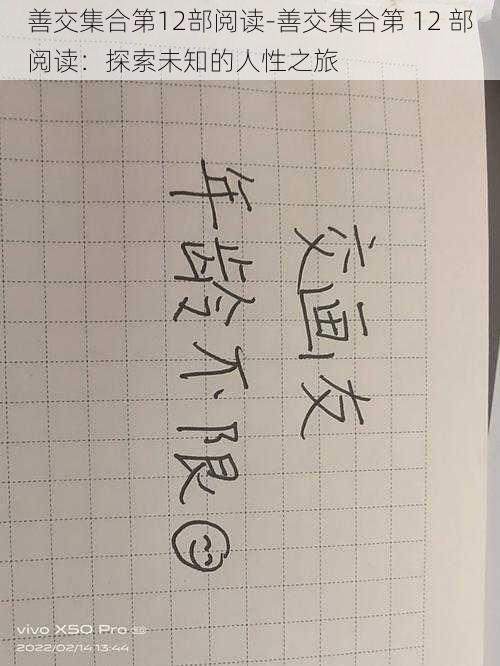 善交集合第12部阅读-善交集合第 12 部
阅读：探索未知的人性之旅
交画友
年龄不限
vivo X50 Pro 5G
2022/02/14 13:44